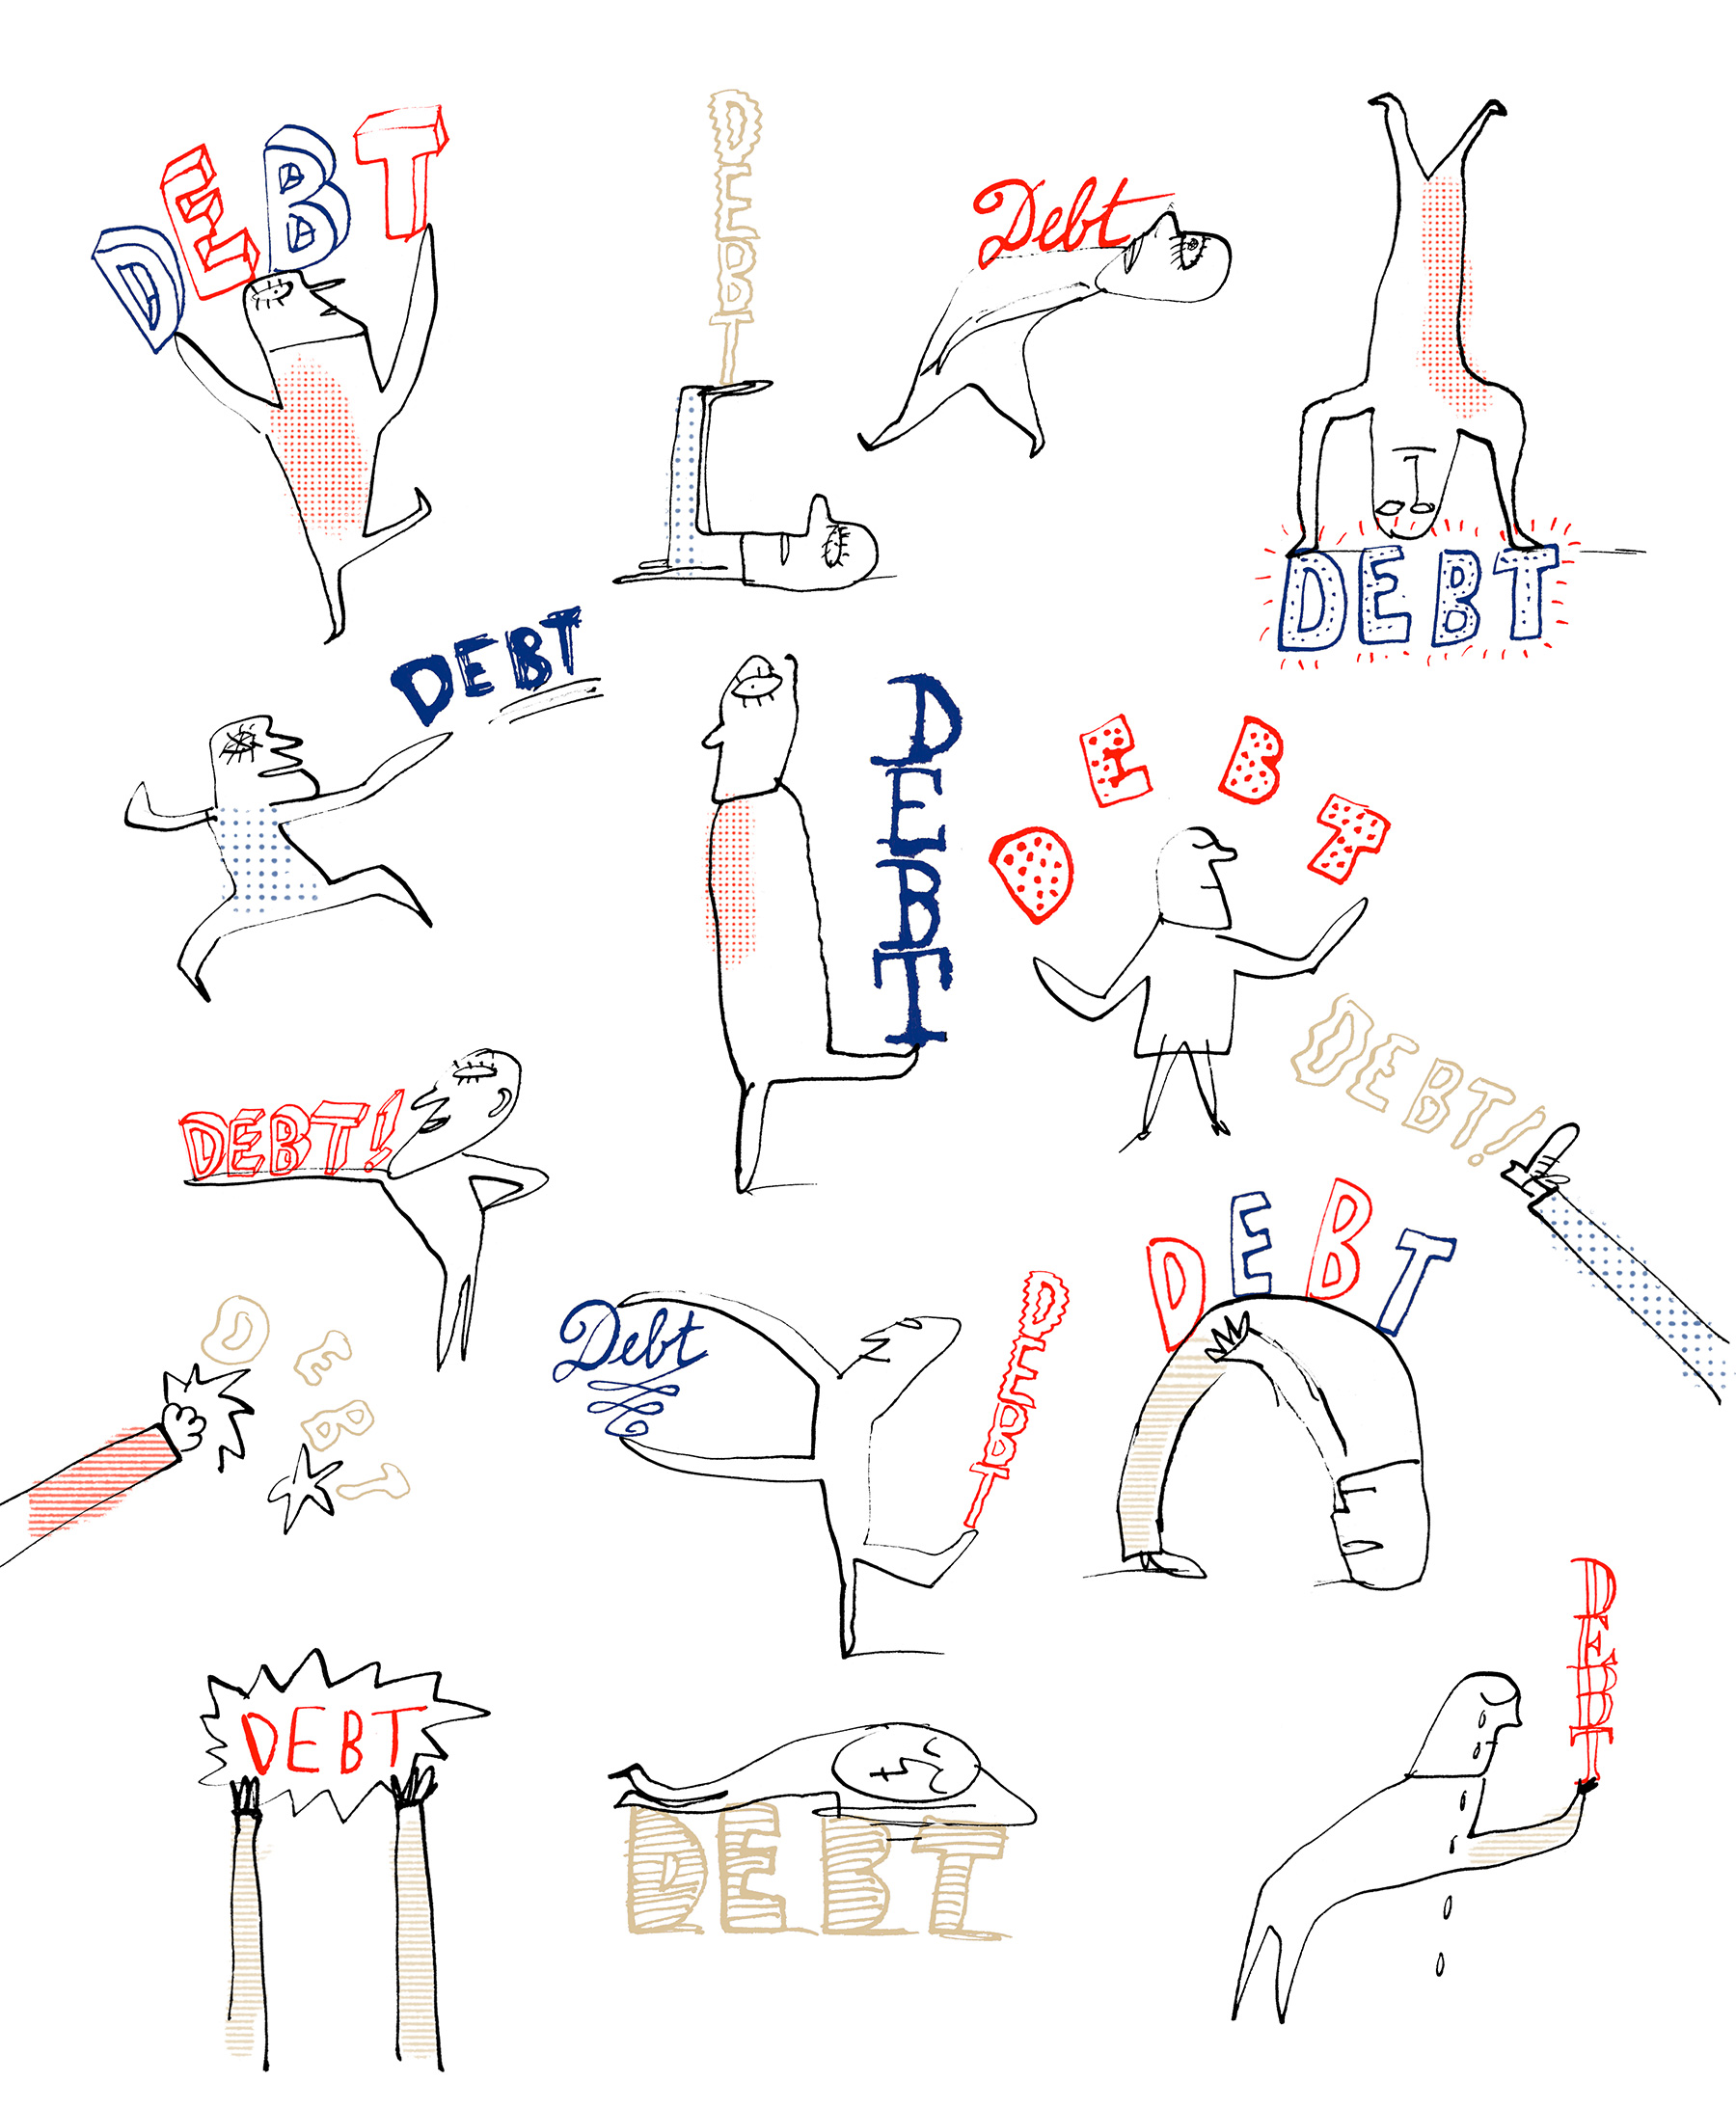 DEBT
DEBT
Debt
DEBT
DEBT
DEBT
DEBT
DEBT!
DEBT!
DEBT
Debt
DEBT
DEBT
DEBT
DEBT
DEBT